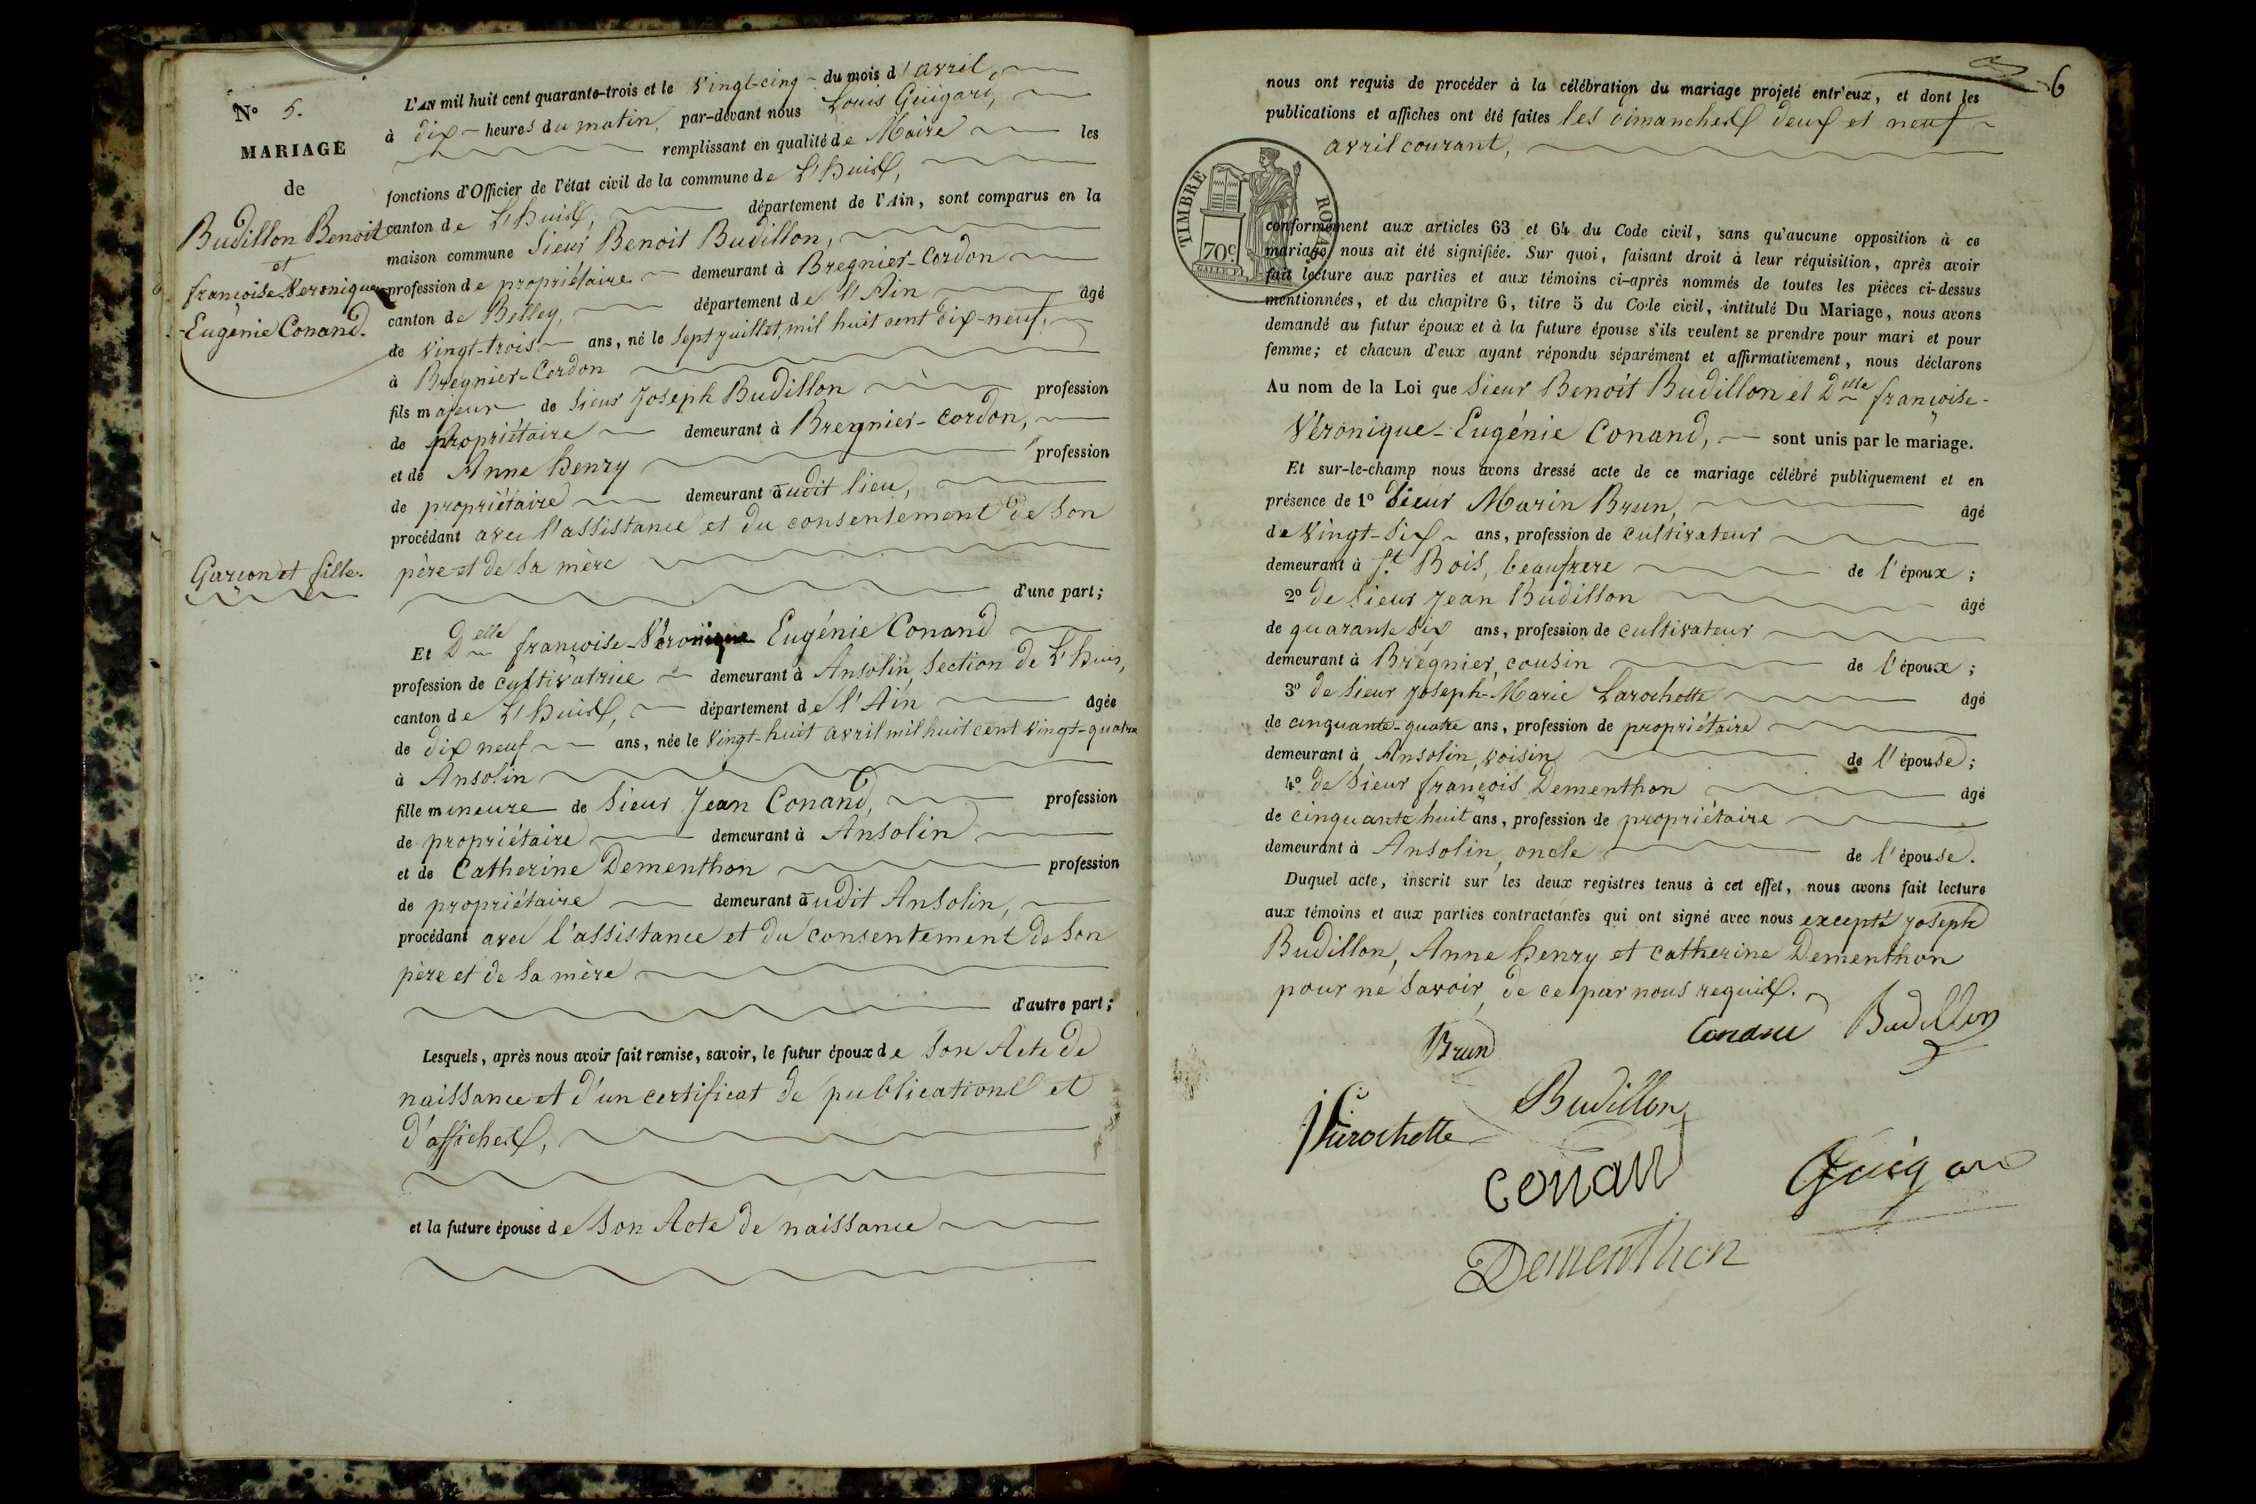 N° 5.
MARIAGE
de
Budillon Benoit
et
françoise Veronique
Eugénie Conand.
Garçon et fille.
L'AN mil huit cent quarante-trois et le Vingt-cinq du mois d'avril,
à dix heures du matin, par-devant nous Louis Guigard,
remplissant en qualité de Maire les
fonctions d'Officier de l'état civil de la commune de L'huis,
canton de L'huis, département de l'Ain, sont comparus en la
maison commune Sieur Benoit Budillon,
profession de propriétaire demeurant à Bregnier-Cordon
canton de Belley, département de l'Ain âgé
de Vingt-trois ans, né le sept juillet mil huit cent dix-neuf,
à Bregnier-Cordon
fils majeur de Sieur Joseph Budillon profession
de propriétaire demeurant à Bregnier-Cordon,
et de Anne henry profession
de propriétaire demeurant audit lieu,
procédant avec l'assistance et du consentement de son
père et de sa mère
d'une part;
Et Delle françoise-Véronique Eugénie Conand
profession de cultivatrice demeurant à Ansolin, section de L'huis,
canton de L'huis, département de l'Ain âgée
de dix neuf ans, née le Vingt-huit avril mil huit cent vingt-quatre
à Ansolin
fille mineure de Sieur Jean Conand, profession
de propriétaire demeurant à Ansolin
et de Catherine Dementhon profession
de propriétaire demeurant audit Ansolin,
procédant avec l'assistance et du consentement de son
père et de sa mère
d'autre part;
Lesquels, après nous avoir fait remise, savoir, le futur époux de son Acte de
naissance et d'un certificat de publications et
d'affiches,
et la future épouse de son Acte de naissance
6
nous ont requis de procéder à la célébration du mariage projeté entr'eux, et dont les
publications et affiches ont été faites les dimanches deux et neuf
avril courant,
TIMBRE ROYAL
70c
conformément aux articles 63 et 64 du Code civil, sans qu'aucune opposition à ce
mariage nous ait été signifiée. Sur quoi, faisant droit à leur réquisition, après avoir
fait lecture aux parties et aux témoins ci-après nommés de toutes les pièces ci-dessus
mentionnées, et du chapitre 6, titre 5 du Code civil, intitulé Du Mariage, nous avons
demandé au futur époux et à la future épouse s'ils veulent se prendre pour mari et pour
femme; et chacun d'eux ayant répondu séparément et affirmativement, nous déclarons
Au nom de la Loi que Sieur Benoit Budillon et Delle françoise-
Véronique-Eugénie Conand, sont unis par le mariage.
Et sur-le-champ nous avons dressé acte de ce mariage célébré publiquement et en
présence de 1° Sieur Marin Brun, âgé
de Vingt-six ans, profession de cultivateur
demeurant à St Bois, beaufrere de l'époux;
2° de Sieur Jean Budillon âgé
de quarante six ans, profession de cultivateur
demeurant à Bregnier, cousin de l'époux;
3° de Sieur Joseph-Marie Larochette âgé
de cinquante-quatre ans, profession de propriétaire
demeurant à Ansolin, voisin de l'épouse;
4° de Sieur françois Dementhon âgé
de cinquante huit ans, profession de propriétaire
demeurant à Ansolin, oncle de l'épouse.
Duquel acte, inscrit sur les deux registres tenus à cet effet, nous avons fait lecture
aux témoins et aux parties contractantes qui ont signé avec nous excepté Joseph
Budillon, Anne henry et Catherine Dementhon
pour ne savoir, de ce par nous requis.
Brun Conand Budillon
Budillon
Larochette
Conand
Guigard
Dementhon